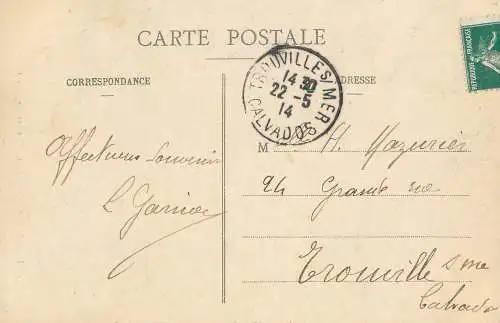 CARTE POSTALE
CORRESPONDANCE
ADRESSE
TROUVILLE S/MER
14 30
22 - 5
14
CALVADOS
REPUBLIQUE FRANÇAISE
Affectueux Souvenir
L Garnier
M H. Mazurier
24 Grande rue
Trouville s mer
Calvados